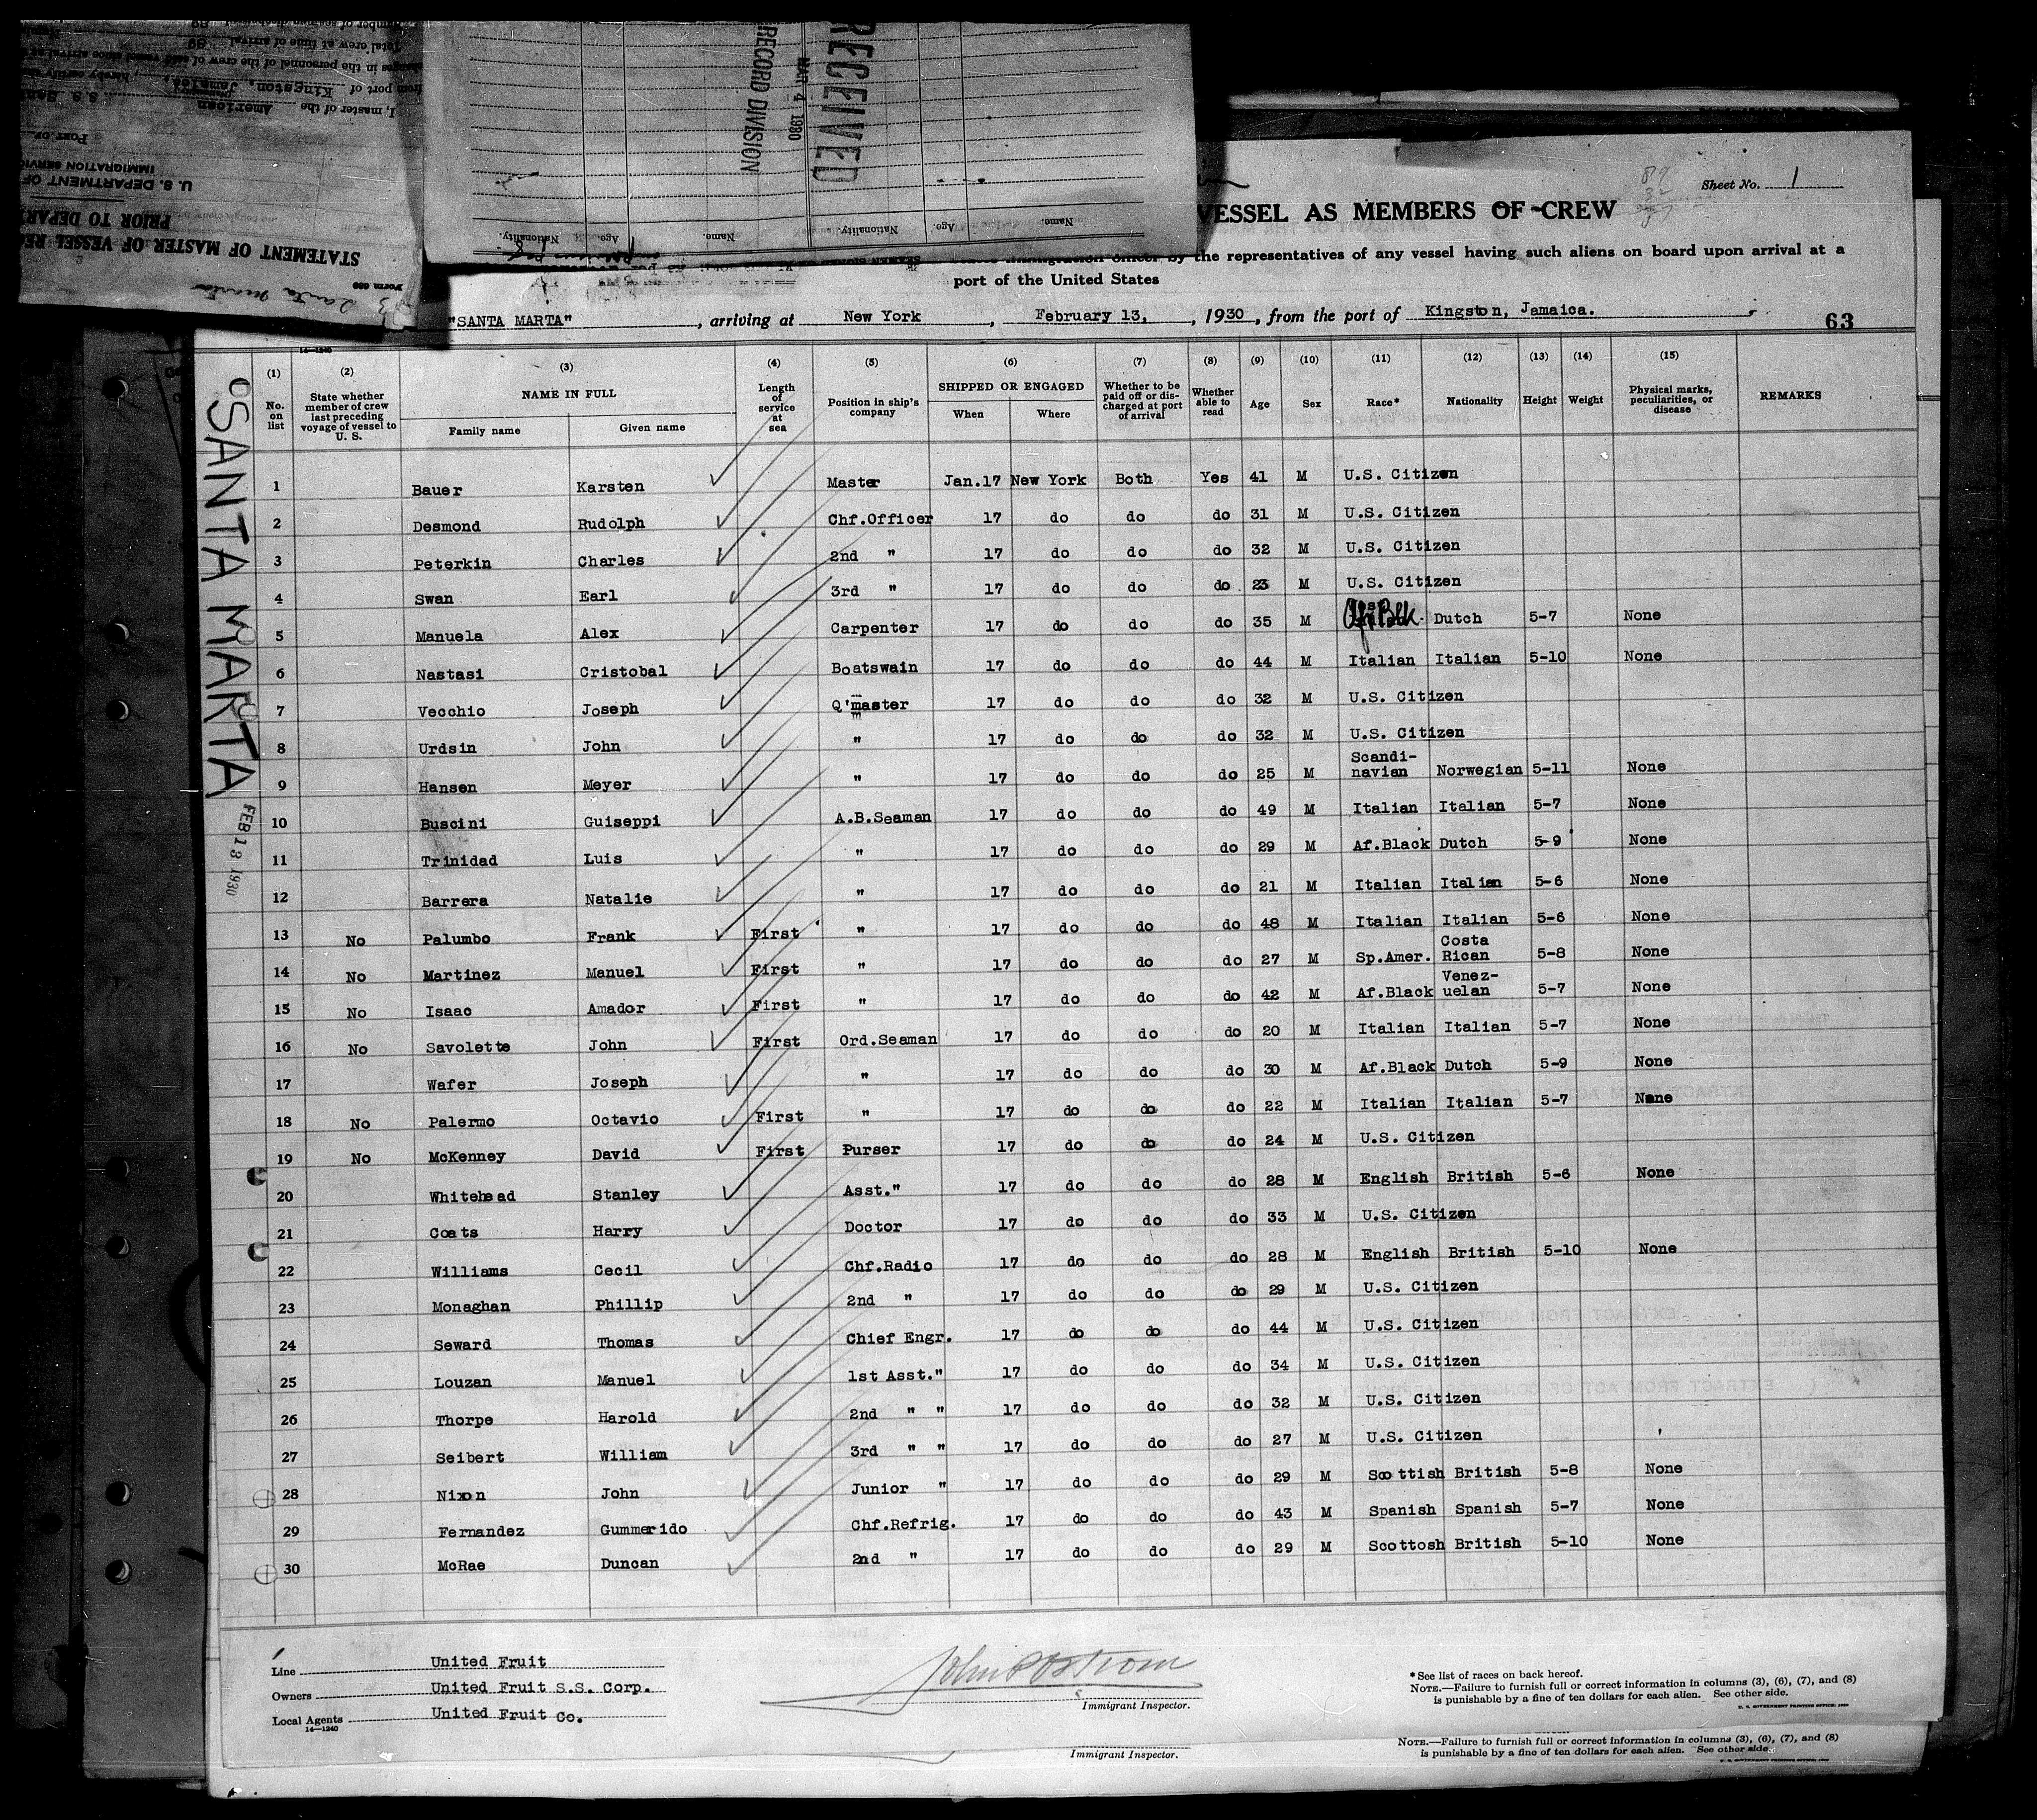 RECEIVED
MAR 4 1930
RECORD DIVISION
Name. Age. Nationality. Name. Age. Nationality.
Form 689
STATEMENT OF MASTER OF VESSEL RE
PRIOR TO DEPAR
U. S. DEPARTMENT OF
IMMIGRATION SERVIC
PORT OF
I, master of the American S.S. San
from port of Kingston, Jamaica, hereby certify
changes in the personnel of the crew of said vessel since arrival
Total crew at time of arrival 89
Santa Marta
Sheet No. 1
VESSEL AS MEMBERS OF CREW
by the representatives of any vessel having such aliens on board upon arrival at a
port of the United States
"SANTA MARTA", arriving at New York, February 13, 1930, from the port of Kingston, Jamaica.
63
SANTA MARTA
FEB 13 1930
14-1240
(1) (2) (3) (4) (5) (6) (7) (8) (9) (10) (11) (12) (13) (14) (15)
No. on list
State whether member of crew last preceding voyage of vessel to U. S.
NAME IN FULL
Family name Given name
Length of service at sea
Position in ship's company
SHIPPED OR ENGAGED
When Where
Whether to be paid off or discharged at port of arrival
Whether able to read
Age Sex Race* Nationality Height Weight
Physical marks, peculiarities, or disease
REMARKS
1 Bauer Karsten Master Jan.17 New York Both Yes 41 M U.S. Citizen
2 Desmond Rudolph Chf.Officer 17 do do do 31 M U.S. Citizen
3 Peterkin Charles 2nd " 17 do do do 32 M U.S. Citizen
4 Swan Earl 3rd " 17 do do do 23 M U.S. Citizen
5 Manuela Alex Carpenter 17 do do do 35 M Af Blk Dutch 5-7 None
6 Nastasi Cristobal Boatswain 17 do do do 44 M Italian Italian 5-10 None
7 Vecchio Joseph Q'master 17 do do do 32 M U.S. Citizen
8 Urdsin John " 17 do do do 32 M U.S. Citizen
9 Hansen Meyer " 17 do do do 25 M Scandi-navian Norwegian 5-11 None
10 Buscini Guiseppi A.B.Seaman 17 do do do 49 M Italian Italian 5-7 None
11 Trinidad Luis " 17 do do do 29 M Af.Black Dutch 5-9 None
12 Barrera Natalie " 17 do do do 21 M Italian Italian 5-6 None
13 No Palumbo Frank First " 17 do do do 48 M Italian Italian 5-6 None
14 No Martinez Manuel First " 17 do do do 27 M Sp.Amer. Costa Rican 5-8 None
15 No Isaac Amador First " 17 do do do 42 M Af.Black Venez-uelan 5-7 None
16 No Savolette John First Ord.Seaman 17 do do do 20 M Italian Italian 5-7 None
17 Wafer Joseph " 17 do do do 30 M Af.Black Dutch 5-9 None
18 No Palermo Octavio First " 17 do do do 22 M Italian Italian 5-7 None
19 No McKenney David First Purser 17 do do do 24 M U.S. Citizen
20 Whitehead Stanley Asst." 17 do do do 28 M English British 5-6 None
21 Coats Harry Doctor 17 do do do 33 M U.S. Citizen
22 Williams Cecil Chf.Radio 17 do do do 28 M English British 5-10 None
23 Monaghan Phillip 2nd " 17 do do do 29 M U.S. Citizen
24 Seward Thomas Chief Engr. 17 do do do 44 M U.S. Citizen
25 Louzan Manuel 1st Asst." 17 do do do 34 M U.S. Citizen
26 Thorpe Harold 2nd " " 17 do do do 32 M U.S. Citizen
27 Seibert William 3rd " " 17 do do do 27 M U.S. Citizen
28 Nixon John Junior " 17 do do do 29 M Scottish British 5-8 None
29 Fernandez Gummerido Chf.Refrig. 17 do do do 43 M Spanish Spanish 5-7 None
30 McRae Duncan 2nd " 17 do do do 29 M Scottosh British 5-10 None
Line United Fruit
Owners United Fruit S.S. Corp.
Local Agents United Fruit Co.
14-1240
Immigrant Inspector.
*See list of races on back hereof.
NOTE.—Failure to furnish full or correct information in columns (3), (6), (7), and (8)
is punishable by a fine of ten dollars for each alien. See other side.
Immigrant Inspector.
NOTE.—Failure to furnish full or correct information in columns (3), (6), (7), and (8)
is punishable by a fine of ten dollars for each alien. See other side.